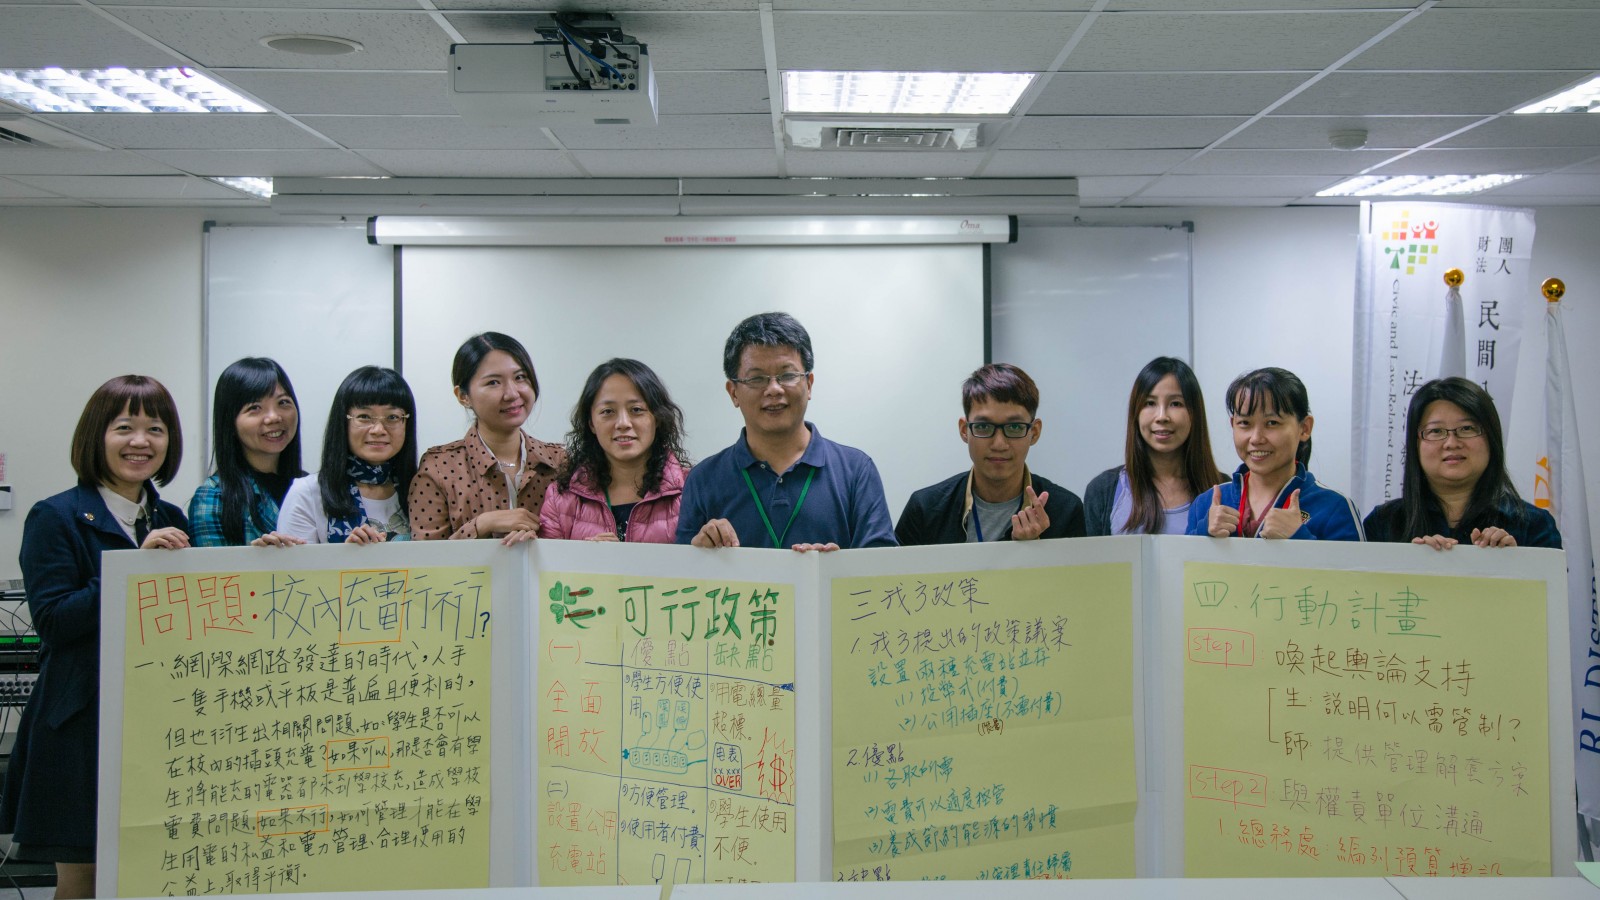 問題:校內充電行不行?
一、網際網路發達的時代,人手
一隻手機或平板是普遍且便利的,
但也衍生出相關問題.如:學生是否可以
在校內的插頭充電?如果可以,那是否會有學
生將能充的電器都來到學校充,造成學校
電費問題.如果不行,如何管理才能在學
生用電的私益和電力管理、合理使用的
公益上,取得平衡.
二.可行政策
優點 缺點
(一)
全面
開放
①學生方便使
用.
①用電總量
超標.
电表
OVER
$
(二)
設置公用
充電站
①方便管理.
②使用者付費.
①學生使用
不便.
三 我方政策
1.我方提出的政策議案
設置兩種充電站並存
(1) 投幣式(付費)
(2) 公用插座(不需付費)
(限量)
2.優點
(1) 各取所需
(2) 電費可以適度控管
(3) 養成節約能源的習慣
3.缺點
四.行動計畫
step 1:
喚起輿論支持
生:說明何以需管制?
師:提供管理解套方案
step 2
與權責單位溝通
1.總務處:編列預算增設
財團
法人
民間
法治
Civic and Law-Related Educa
Omar
RI DISTR